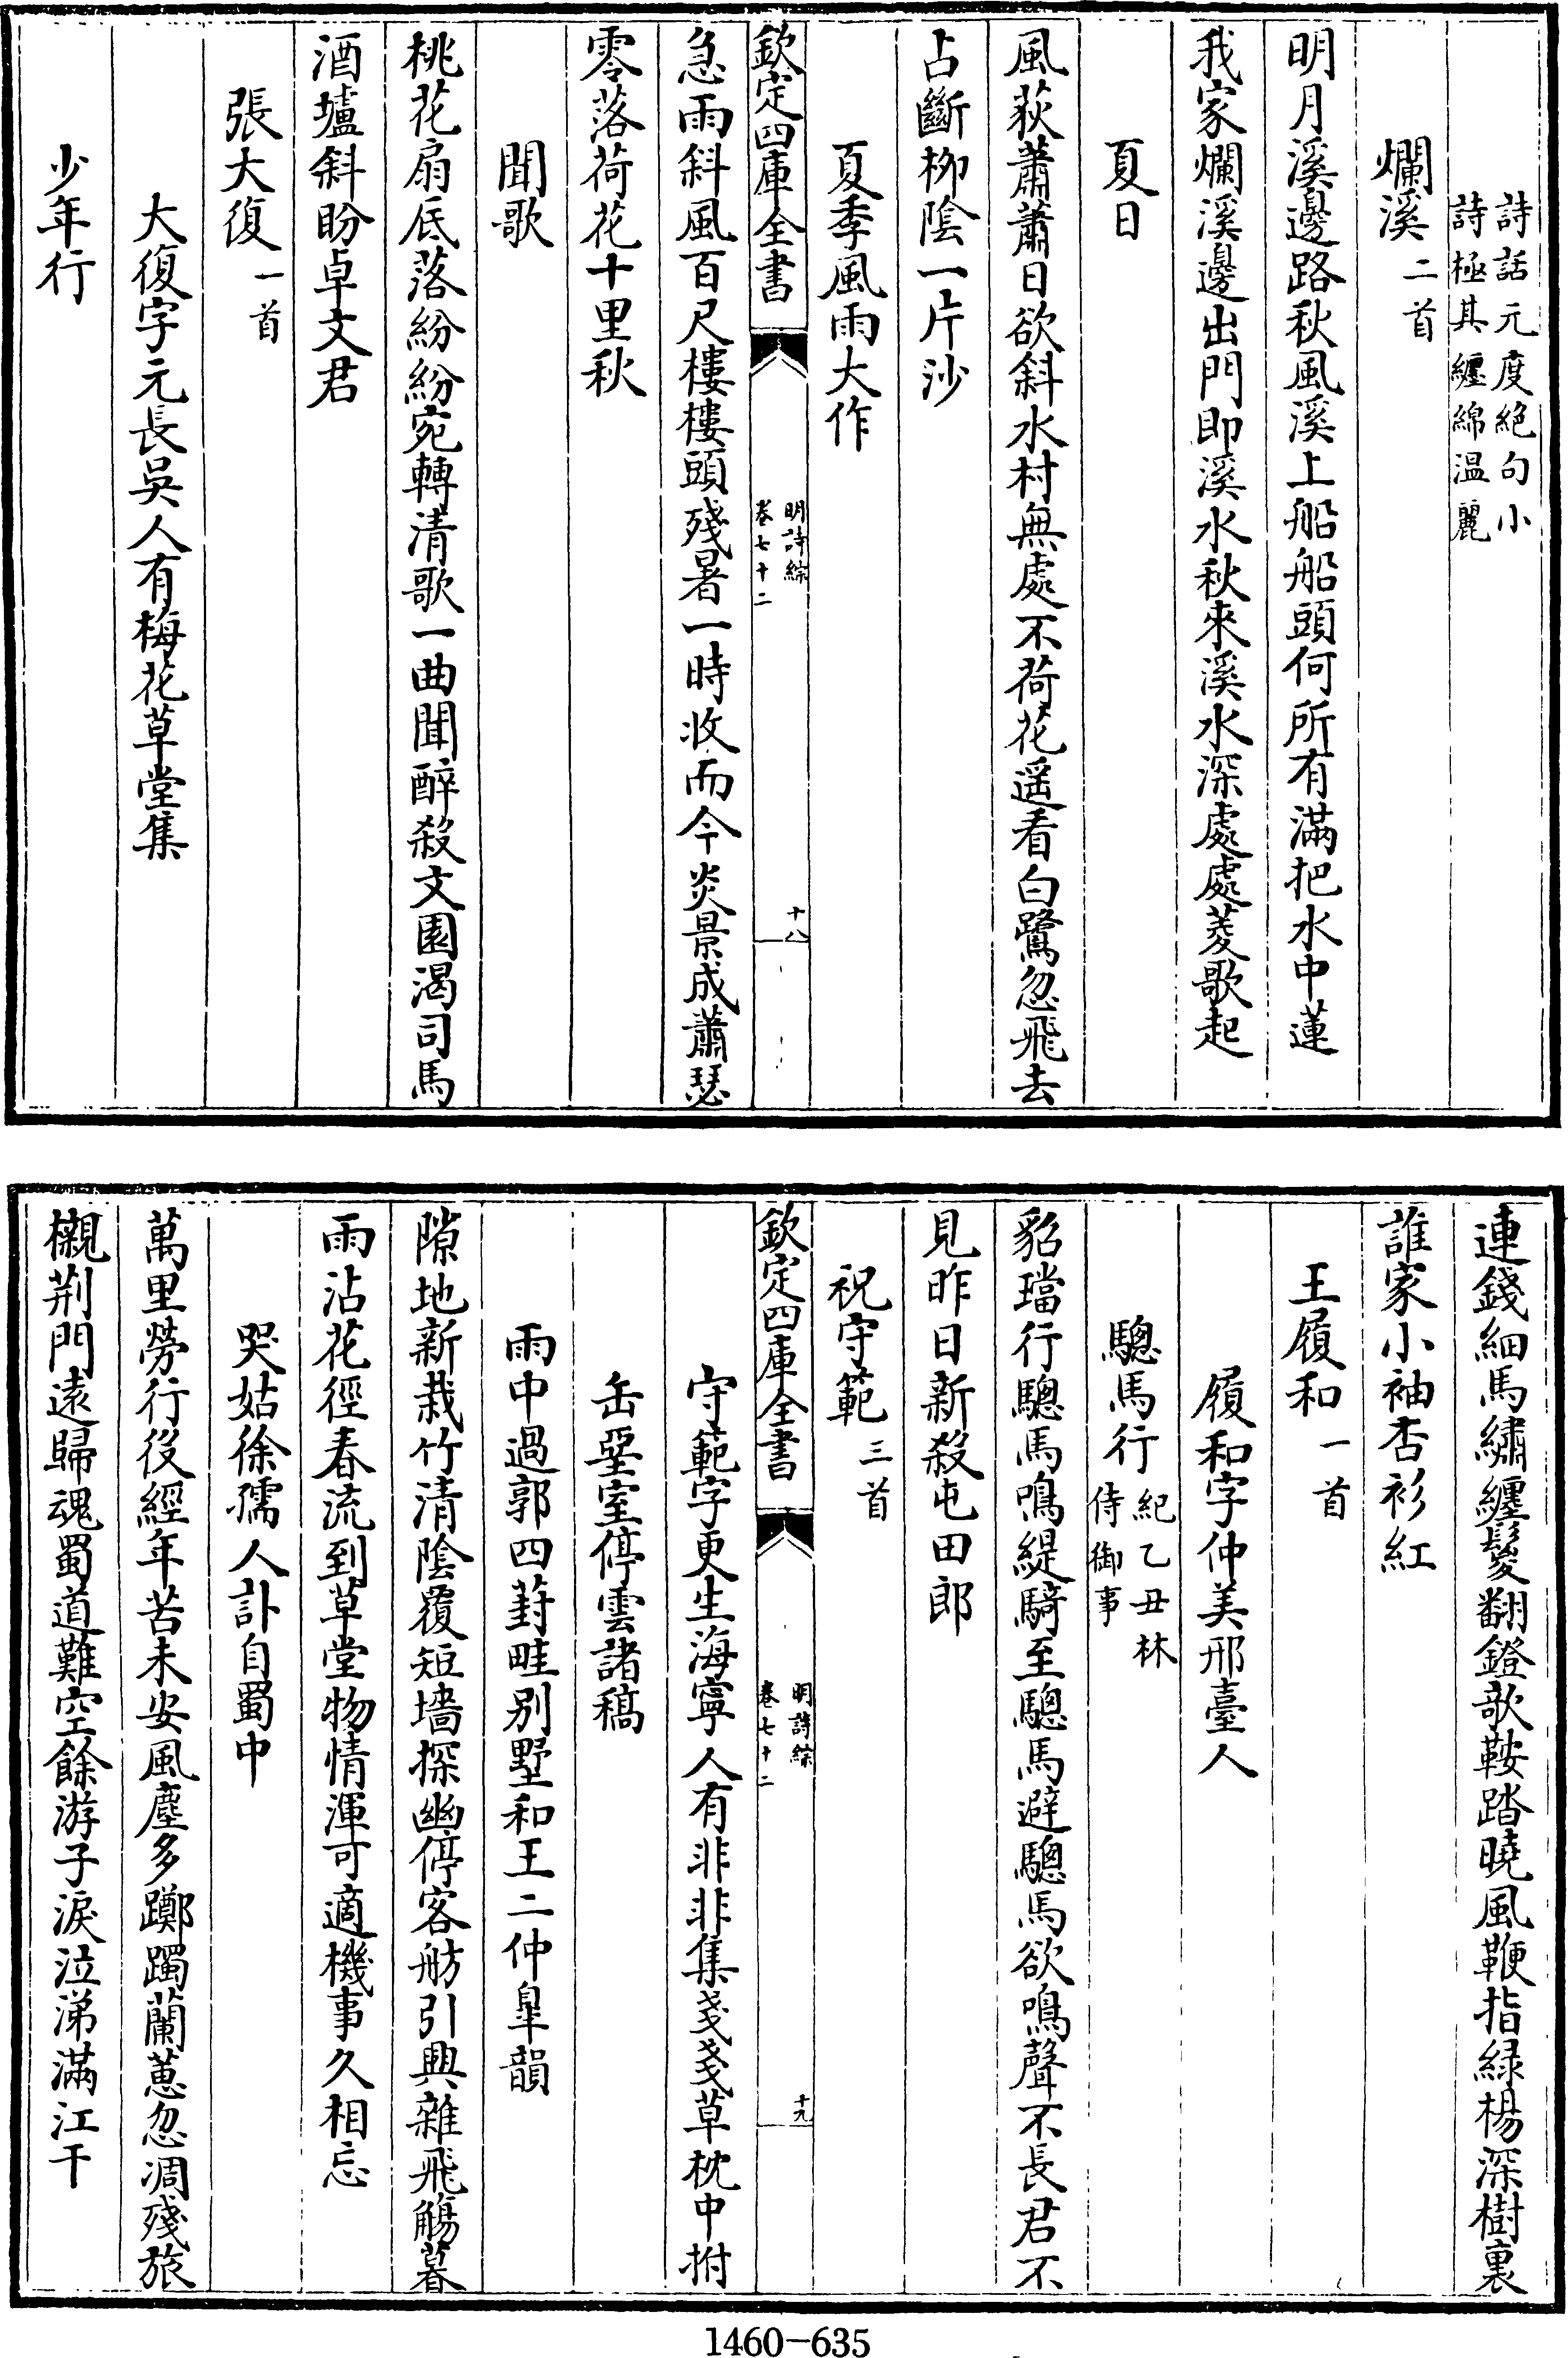 詩話元度絶句小
詩極其纏綿温麗
爛溪二首
明月溪邊路秋風溪上船船頭何所有滿把水中蓮
我家爛溪邊出門即溪水秋來溪水深處處菱歌起
夏日
風荻蕭蕭日欲斜水村無處不荷花遥看白鷺忽飛去
占斷柳陰一片沙
夏季風雨大作
欽定四庫全書
明詩綜
卷七十二
十八
急雨斜風百尺樓樓頭殘暑一時收而今炎景成蕭瑟
零落荷花十里秋
聞歌
桃花扇底落紛紛宛轉清歌一曲聞醉殺文園渴司馬
酒壚斜盼卓文君
張大復一首
大復字元長吳人有梅花草堂集
少年行
連錢細馬繡纏鬉翻鐙欹鞍踏曉風鞭指緑楊深樹裏
誰家小袖杏衫紅
王履和一首
履和字仲美邢臺人
驄馬行紀乙丑林
侍御事
貂璫行驄馬鳴緹騎至驄馬避驄馬欲鳴聲不長君不
見昨日新殺屯田郎
祝守範三首
欽定四庫全書
明詩綜
卷七十二
十九
守範字更生海寧人有非非集戔戔草枕中拊
缶堊室停雲諸稿
雨中過郭四葑畦别墅和王二仲臯韻
隙地新栽竹清陰覆短墻探幽停客舫引興雜飛觴暮
雨沾花徑春流到草堂物情渾可適機事久相忘
哭姑徐孺人訃自蜀中
萬里勞行役經年苦未安風塵多躑躅蘭蕙忽凋殘旅
櫬荆門遠歸魂蜀道難空餘游子淚泣涕滿江干
1460-635